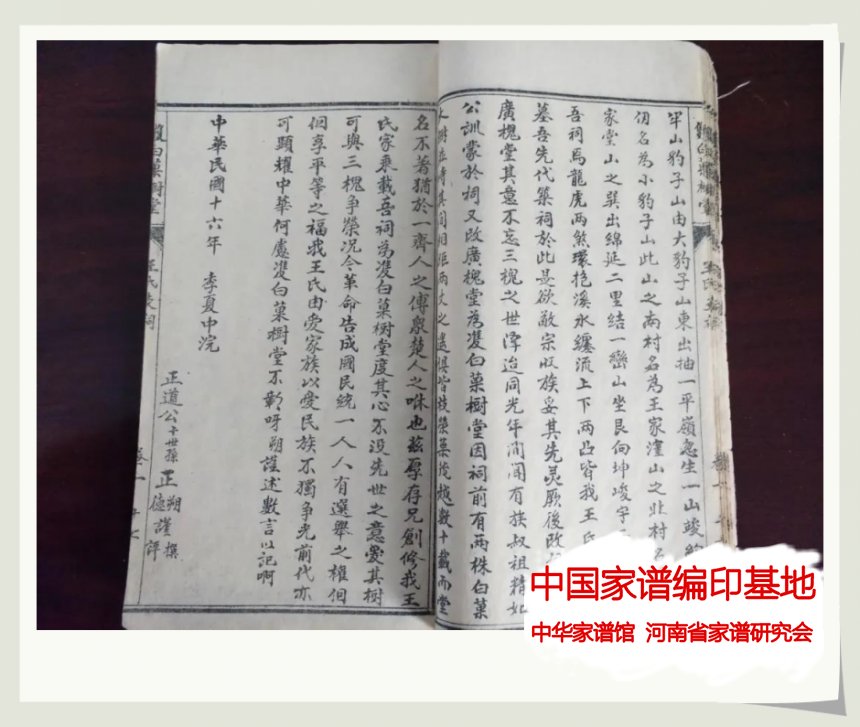 牢山豹子山由大豹子山東出抽一平嶺忽生一山峻
仍名為小豹子山此山之南村名為王家漥山之北村名
家堂山之巽出綿延二里結一巒山坐艮向坤峻宇
吾祠焉龍虎兩煞環抱溪水纏流上下兩凸皆我王氏
墓吾先代築祠於此是欲敬宗收族妥其先灵厥後改
廣槐堂其意不忘三槐之世澤迨同光年間聞有族叔祖精如
公訓蒙於祠又改廣槐堂為雙白菓樹堂因祠前有兩株白菓
人對並峙其間相距兩丈之遠俱皆枝榮葉茂越數十載而堂
名不著猶於一齊人之傅眾楚人之咻也茲厚存兄創修我王
氏家乘載吾祠為雙白菓樹堂度其心不没先世之意愛其樹
可與三槐争榮况今革命告成國民統一人人有選舉之權個
個享平等之福我王氏由愛家族以愛民族不獨争光前代亦
可顯耀中華何慮雙白菓樹堂不彰呀朔謹述數言以記啊
中華民國十六年 季夏中浣
正道公十世孫 正朔謹撰
德 評
雙白菓樹堂
王氏支祠
卷一
中国家谱编印基地
中华家谱馆 河南省家谱研究会